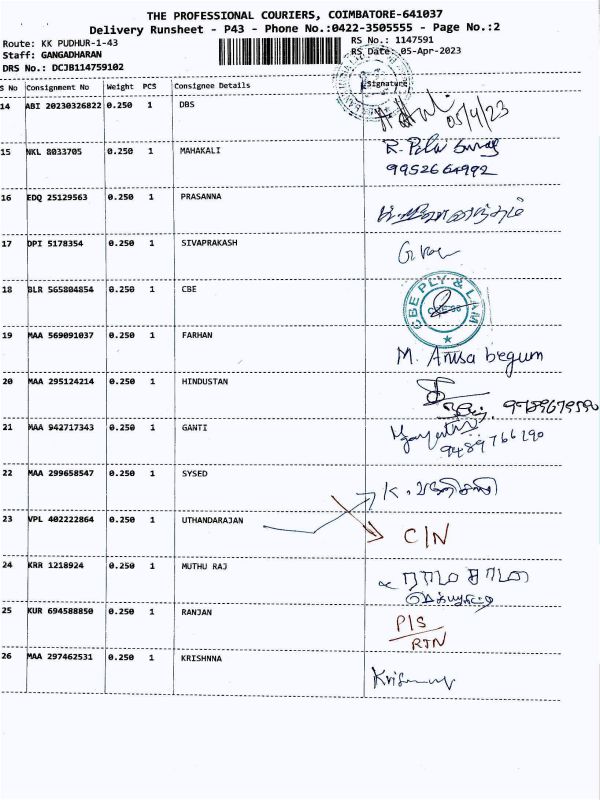 THE PROFESSIONAL COURIERS, COIMBATORE-641037
Delivery Runsheet - P43 - Phone No.:0422-3505555 - Page No.:2
Route: KK PUDHUR-1-43 RS No.: 1147591
Staff: GANGADHARAN RS Date: 05-Apr-2023
DRS No.: DCJB114759102
S No Consignment No Weight PCS Consignee Details Signature
14 ABI 20230326822 0.250 1 DBS 05/4/23
15 NKL 8033705 0.250 1 MAHAKALI
9952664992
16 EDQ 25129563 0.250 1 PRASANNA
17 DPI 5178354 0.250 1 SIVAPRAKASH
18 BLR 565804854 0.250 1 CBE CBE PLY & LAM
19 MAA 569091037 0.250 1 FARHAN
M. Anisa begum
20 MAA 295124214 0.250 1 HINDUSTAN
21 MAA 942717343 0.250 1 GANTI
9489766190
22 MAA 299658547 0.250 1 SYSED
23 VPL 402222864 0.250 1 UTHANDARAJAN C/N
24 KRR 1218924 0.250 1 MUTHU RAJ
25 KUR 694588850 0.250 1 RANJAN P/S
RTN
26 MAA 297462531 0.250 1 KRISHNNA